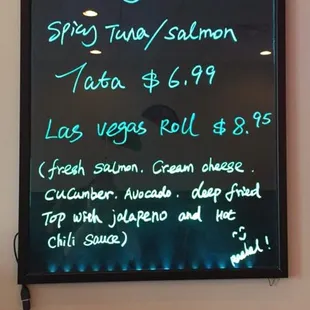 Spicy Tuna/salmon
Tata $6.99
Las vegas Roll $8.95
(fresh salmon. Cream cheese.
CUCumber. Avocado. deep fried
Top with jalapeno and Hot
Chili sauce)